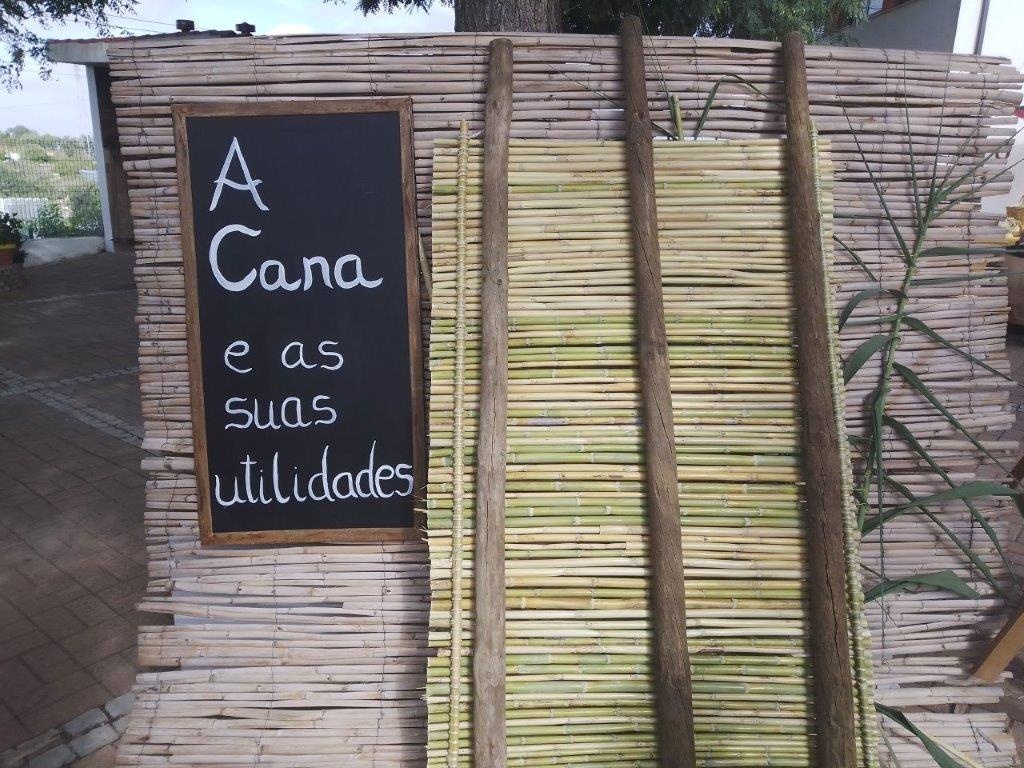 A
Cana
e as
suas
utilidades